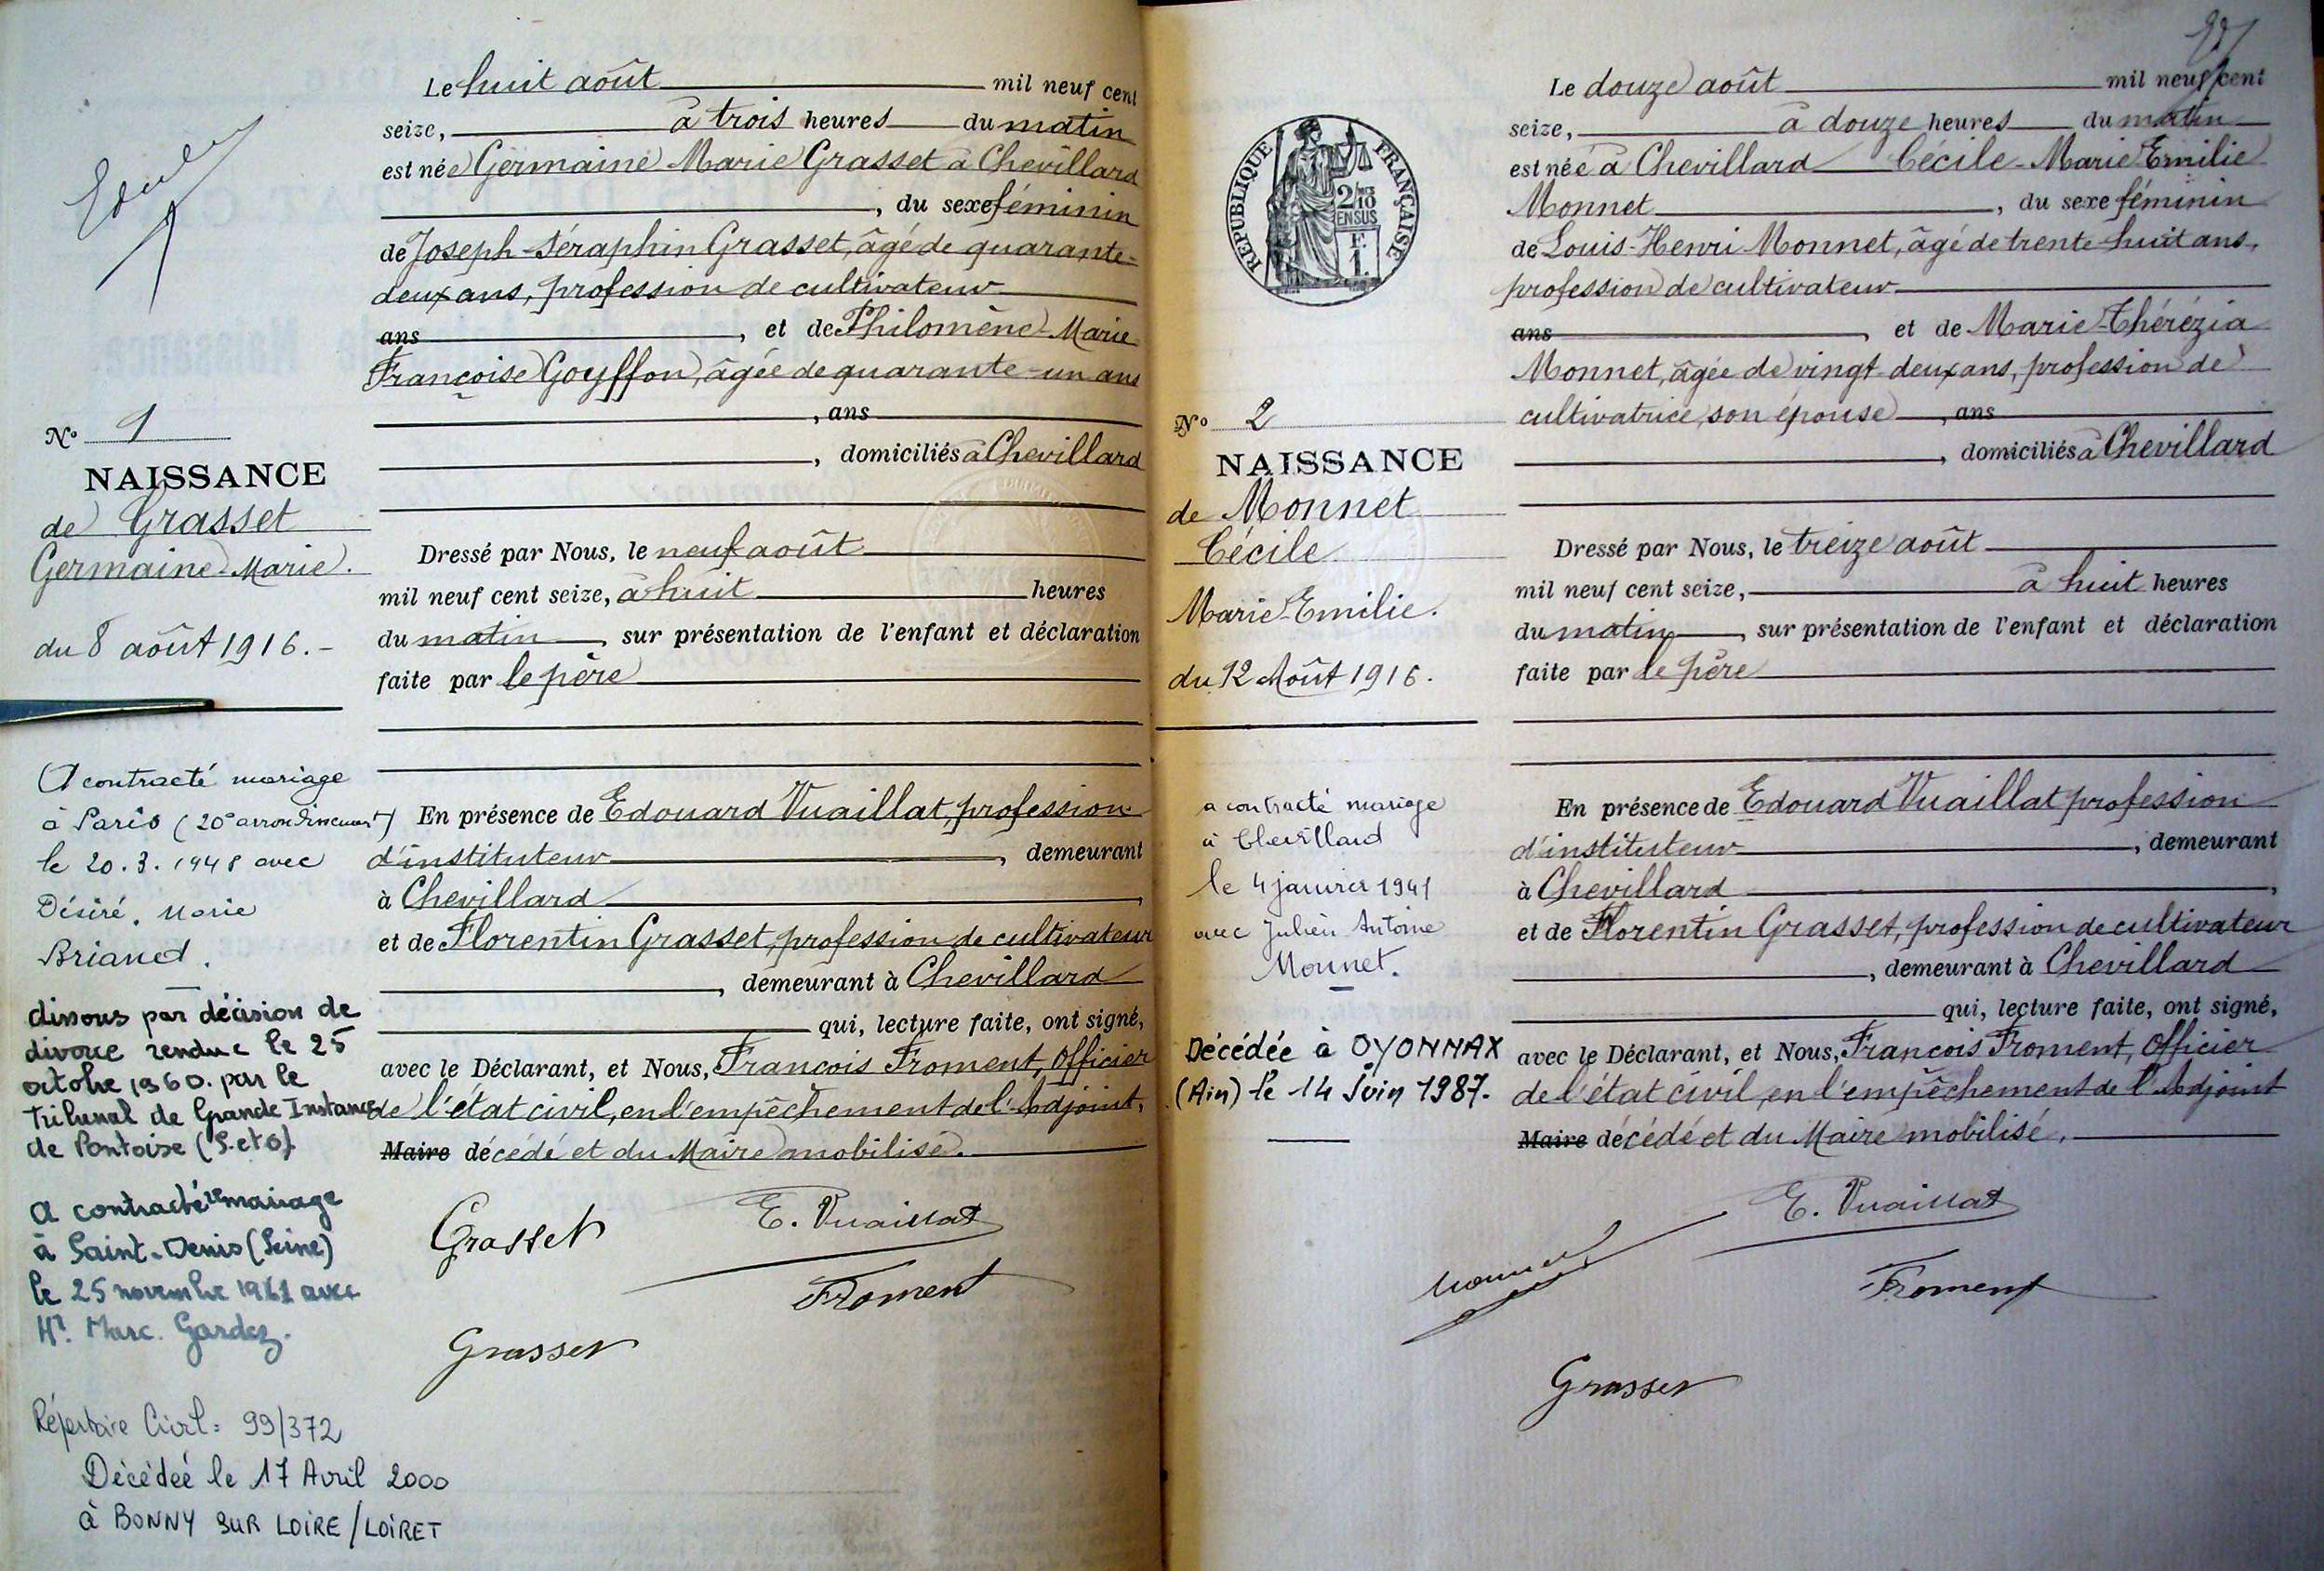 Le huit août mil neuf cent
seize, à trois heures du matin
est née Germaine Marie Grasset à Chevillard
, du sexe féminin
de Joseph-Séraphin Grasset, âgé de quarante-
deux ans, profession de cultivateur
ans, et de Philomène-Marie
Françoise Goyffon, âgée de quarante-un ans
, ans
, domiciliés à Chevillard
Dressé par Nous, le neuf août
mil neuf cent seize, à huit heures
du matin, sur présentation de l'enfant et déclaration
faite par le père
En présence de Edouard Vuaillat, profession
d'instituteur, demeurant
à Chevillard,
et de Florentin Grasset, profession de cultivateur
, demeurant à Chevillard
qui, lecture faite, ont signé,
avec le Déclarant, et Nous, François Froment, Officier
de l'état civil, en l'empêchement de l'Adjoint,
Maire décédé et du Maire mobilisé.
Grasset
E. Vuaillat
Froment
Grasset
No 1
NAISSANCE
de Grasset
Germaine-Marie.
du 8 août 1916.-
A contracté mariage
à Paris (20e arrondissement)
le 20.3.1948 avec
Désiré, Marie
Briand.
dissous par décision de
divorce rendue le 25
octobre 1960. par le
Tribunal de Grande Instance
de Pontoise (S.etO)
a contracté mariage
à Saint-Denis (Seine)
le 25 novembre 1961 avec
Marc. Gardez.
Répertoire Civil: 99/372
Décédée le 17 Avril 2000
à BONNY SUR LOIRE / LOIRET
Le douze août mil neuf cent
seize, à douze heures du matin
est née à Chevillard Cécile-Marie Emilie
Monnet, du sexe féminin
de Louis-Henri Monnet, âgé de trente-huit ans,
profession de cultivateur
ans, et de Marie-Thérézia
Monnet, âgée de vingt-deux ans, profession de
cultivatrice, son épouse, ans
, domiciliés à Chevillard
Dressé par Nous, le treize août
mil neuf cent seize, à huit heures
du matin, sur présentation de l'enfant et déclaration
faite par le père
En présence de Edouard Vuaillat profession
d'instituteur, demeurant
à Chevillard,
et de Florentin Grasset, profession de cultivateur
, demeurant à Chevillard
qui, lecture faite, ont signé,
avec le Déclarant, et Nous, François Froment, Officier
de l'état civil, en l'empêchement de l'Adjoint
Maire décédé et du Maire mobilisé.
E. Vuaillat
Monnet
Froment
Grasset
RÉPUBLIQUE FRANÇAISE
2/10
EN SUS
F.
1.
No 2
NAISSANCE
de Monnet
Cécile
Marie-Emilie.
du 12 Août 1916.
a contracté mariage
à Chevillard
le 4 janvier 1941
avec Julien Antoine
Monnet.
Décédée à OYONNAX
(Ain) le 14 Juin 1987.